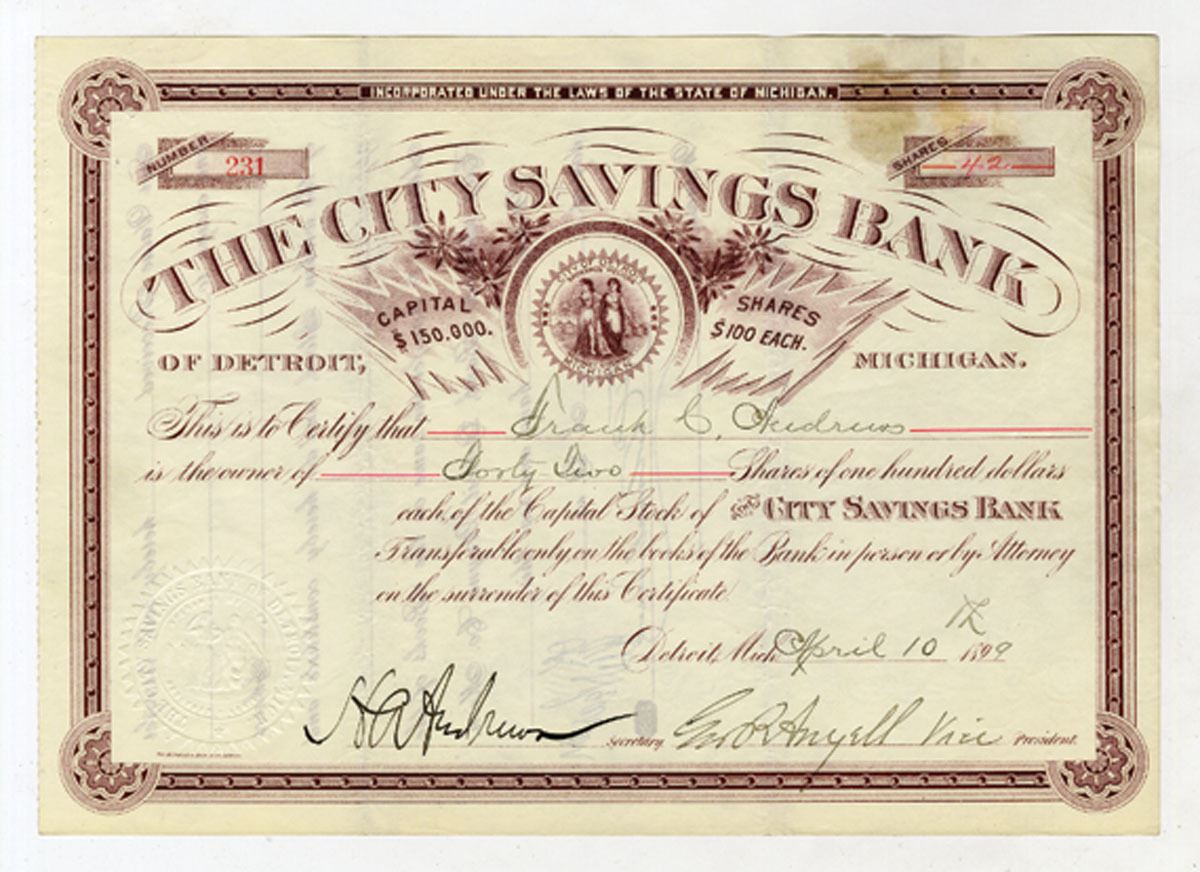 INCORPORATED UNDER THE LAWS OF THE STATE OF MICHIGAN.
NUMBER 231
SHARES 42
THE CITY SAVINGS BANK
CAPITAL $150.000.
CITY OF DETROIT MICHIGAN
SHARES $100 EACH.
OF DETROIT, MICHIGAN.
This is to Certify that Frank C. Andrews
is the owner of Forty Two Shares of one hundred dollars
each, of the Capital Stock of THE CITY SAVINGS BANK
Transferable only, on the books of the Bank in person or by Attorney
on the surrender of this Certificate.
Detroit, Mich. April 10 th 1899
H A Andrews Secretary. Geo R Angell Vice President.